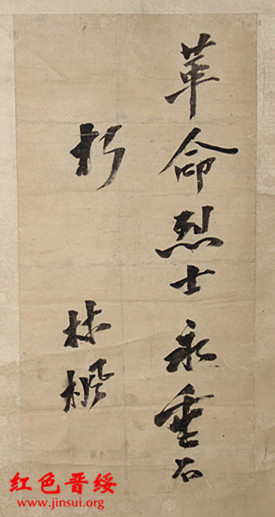 革命烈士永垂不
朽
林楓
红色晋绥
www.jinsui.org